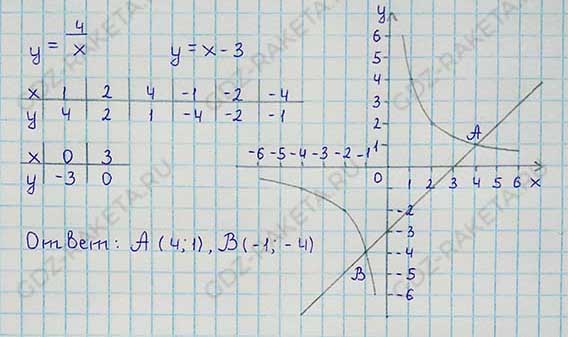 y = 4/x
y = x - 3
x 1 2 4 -1 -2 -4
y 4 2 1 -4 -2 -1
x 0 3
y -3 0
Ответ: A (4; 1), B (-1; -4)
y
6
5
4
3
2
1
A
-6 -5 -4 -3 -2 -1
0 1 2 3 4 5 6 x
-2
-3
-4
-5
-6
B
GDZ-RAKETA.RU